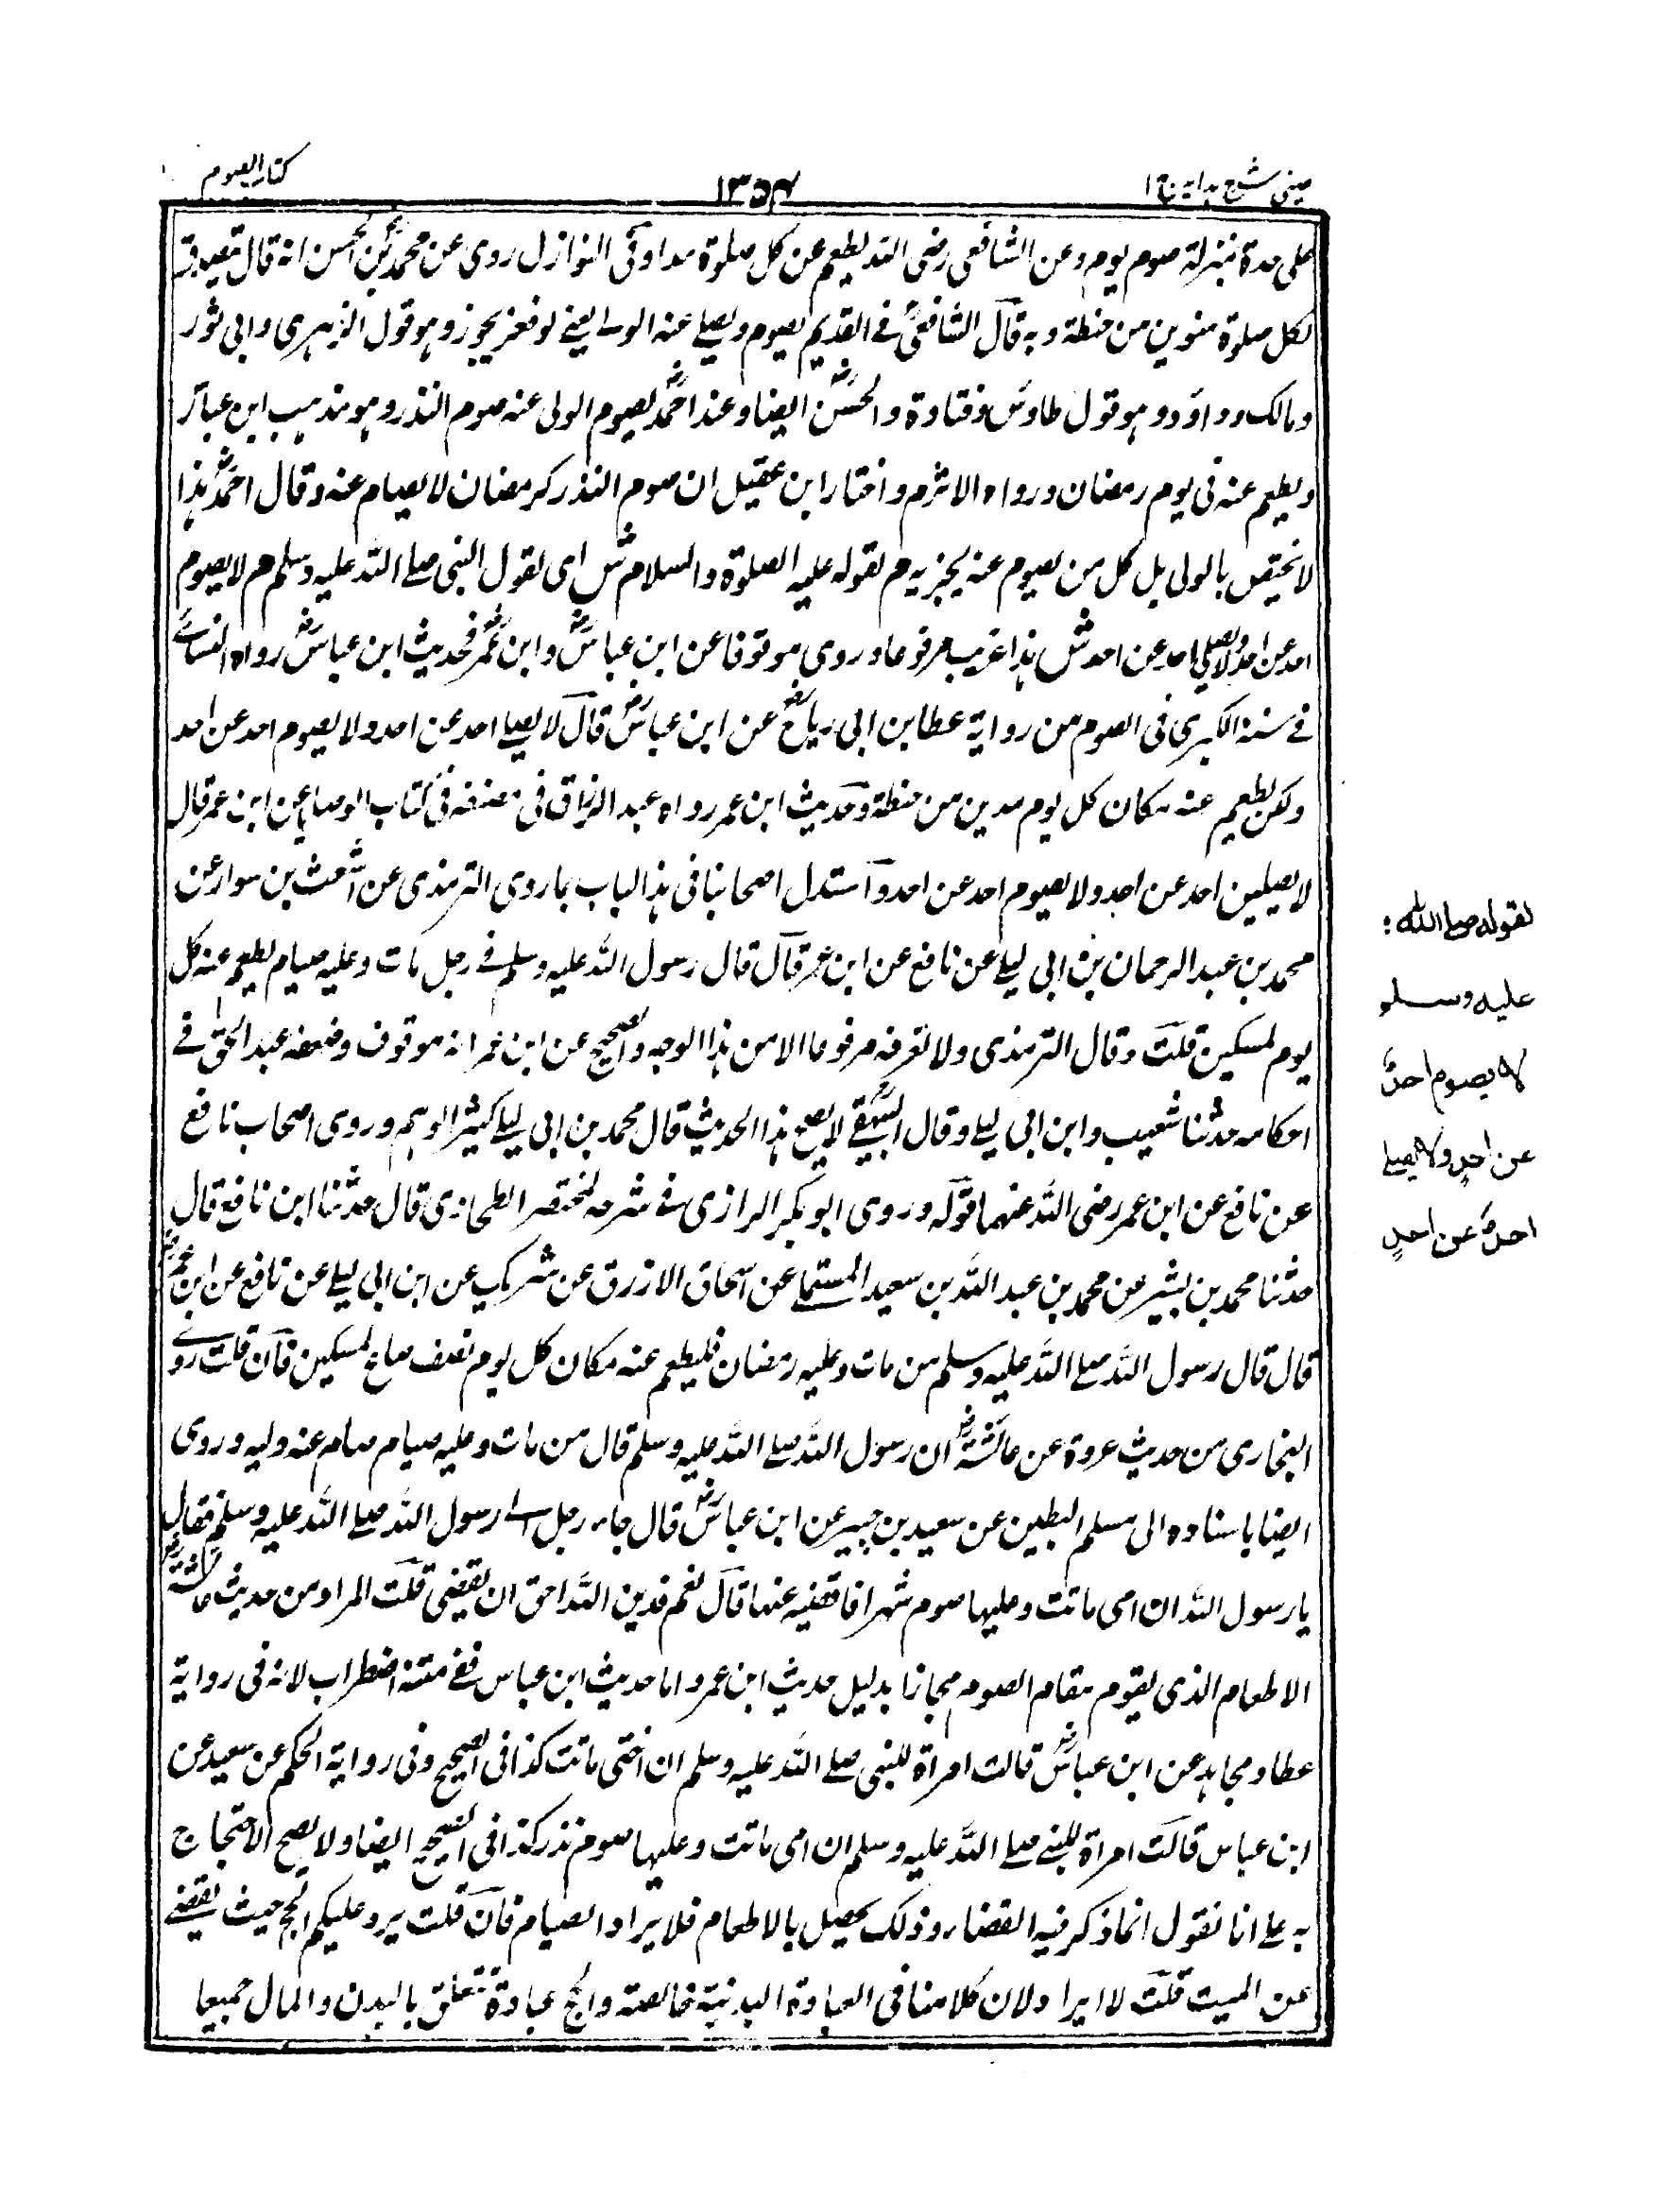 عینی شرح ہدایہ ج ۱
۱۳۵۴
کتاب الصوم
علی حدة بمنزلة صوم یوم وعن الشافعی رضی اللہ یطعم عن کل صلوة مدا وفی النوازل روی عن محمد بن الحسن انہ قال یتصدق
لکل صلوة منوین من حنطة وبہ قال الشافعی فے القدیم یصوم ویصلے عنہ الولے یعنی لو فعل یجوز وہو قول الزہری وابی ثور
ومالک وداود وہو قول طاوس وقتادة والحسن ایضا وعند احمد یصوم الولی عنہ صوم النذر وہو مذہب ابن عباس
ویطعم عنہ فی یوم رمضان ورواہ الاثرم واختار ابن عقیل ان صوم النذر کرمضان لا یصام عنہ وقال احمد ہذا
لا یختص بالولی بل کل من یصوم عنہ یجزیہ م لقولہ علیہ الصلوة والسلام ش ای لقول النبی صلے اللہ علیہ وسلم م لا یصوم
احد عن احد ولا یصلی احد عن احد ش ہذا غریب مرفوعا وروی موقوفا عن ابن عباس وابن عمر فحدیث ابن عباس رواہ النسائے
فے سننہ الکبری فی الصوم من روایة عطا بن ابی رباح عن ابن عباس قال لا یصلے احد عن احد ولا یصوم احد عن احد
ولکن یطعم عنہ مکان کل یوم مدین من حنطة وحدیث ابن عمر رواہ عبد الرزاق فی مصنفہ فی کتاب الوصایا عن ابن عمر قال
لا یصلین احد عن احد ولا یصوم احد عن احد واستدل اصحابنا فی ہذا الباب بما روی الترمذی عن اشعث بن سوار عن
محمد بن عبد الرحمان بن ابی لیلے عن نافع عن ابن عمر قال قال رسول اللہ علیہ وسلم فے رجل مات وعلیہ صیام یطعم عنہ کل
یوم لمسکین قلت وقال الترمذی ولا نعرفہ مرفوعا الا من ہذا الوجہ والصحیح عن ابن عمر انہ موقوف وضعفہ عبد الحق فے
احکامہ حدثنا شعیب وابن ابی لیلے وقال البیہقے لا یصح ہذا الحدیث قال محمد بن ابی لیلے کثیر الوہم وروی اصحاب نافع
عن نافع عن ابن عمر رضی اللہ عنہما قولہ وروی ابو بکر الرازی فے شرحہ لمختصر الطحاوی قال حدثنا ابن نافع قال
حدثنا محمد بن بشیر عن محمد بن عبد اللہ بن سعید المستملے عن اسحاق الازرق عن شریک عن ابن ابی لیلے عن نافع عن ابن عمر
قال قال رسول اللہ صلے اللہ علیہ وسلم من مات وعلیہ رمضان فلیطعم عنہ مکان کل یوم نصف صاع لمسکین فان قلت روے
البخاری من حدیث عروة عن عائشة ان رسول اللہ صلے اللہ علیہ وسلم قال من مات وعلیہ صیام صام عنہ ولیہ وروی
ایضا باسنادہ الی مسلم البطین عن سعید بن جبیر عن ابن عباس قال جاء رجل الے رسول اللہ صلے اللہ علیہ وسلم فقال
یا رسول اللہ ان امی ماتت وعلیہا صوم شہر افاقضیہ عنہا قال نعم فدین اللہ احق ان یقضی قلت المراد من حدیث عائشة
الاطعام الذی یقوم مقام الصوم مجازا بدلیل حدیث ابن عمر واما حدیث ابن عباس ففے متنہ اضطراب لانہ فی روایة
عطا ومجاہد عن ابن عباس قالت امراة للنبی صلے اللہ علیہ وسلم ان اختی ماتت کذا فی الصحیح وفی روایة الحکم عن سعید عن
ابن عباس قالت امراة للنبے صلے اللہ علیہ وسلم ان امی ماتت وعلیہا صوم نذر کذا فی الصحیح ایضا ولا یصح الاحتجاج
بہ علے انا نقول انما ذکر فیہ القضاء وذلک یحصل بالاطعام فلا یراد الصیام فان قلت یرد علیکم الحج حیث یقضے
عن المیت قلت لا ایراد لان کلامنا فی العبادة البدنیة خالصتہ والحج عبادة تتعلق بالبدن والمال جمیعا
لقوله صلے الله
علیه وسلم
لا یصوم احدٌ
عن احدٍ ولا یصلے
احدٌ عن احدٍ